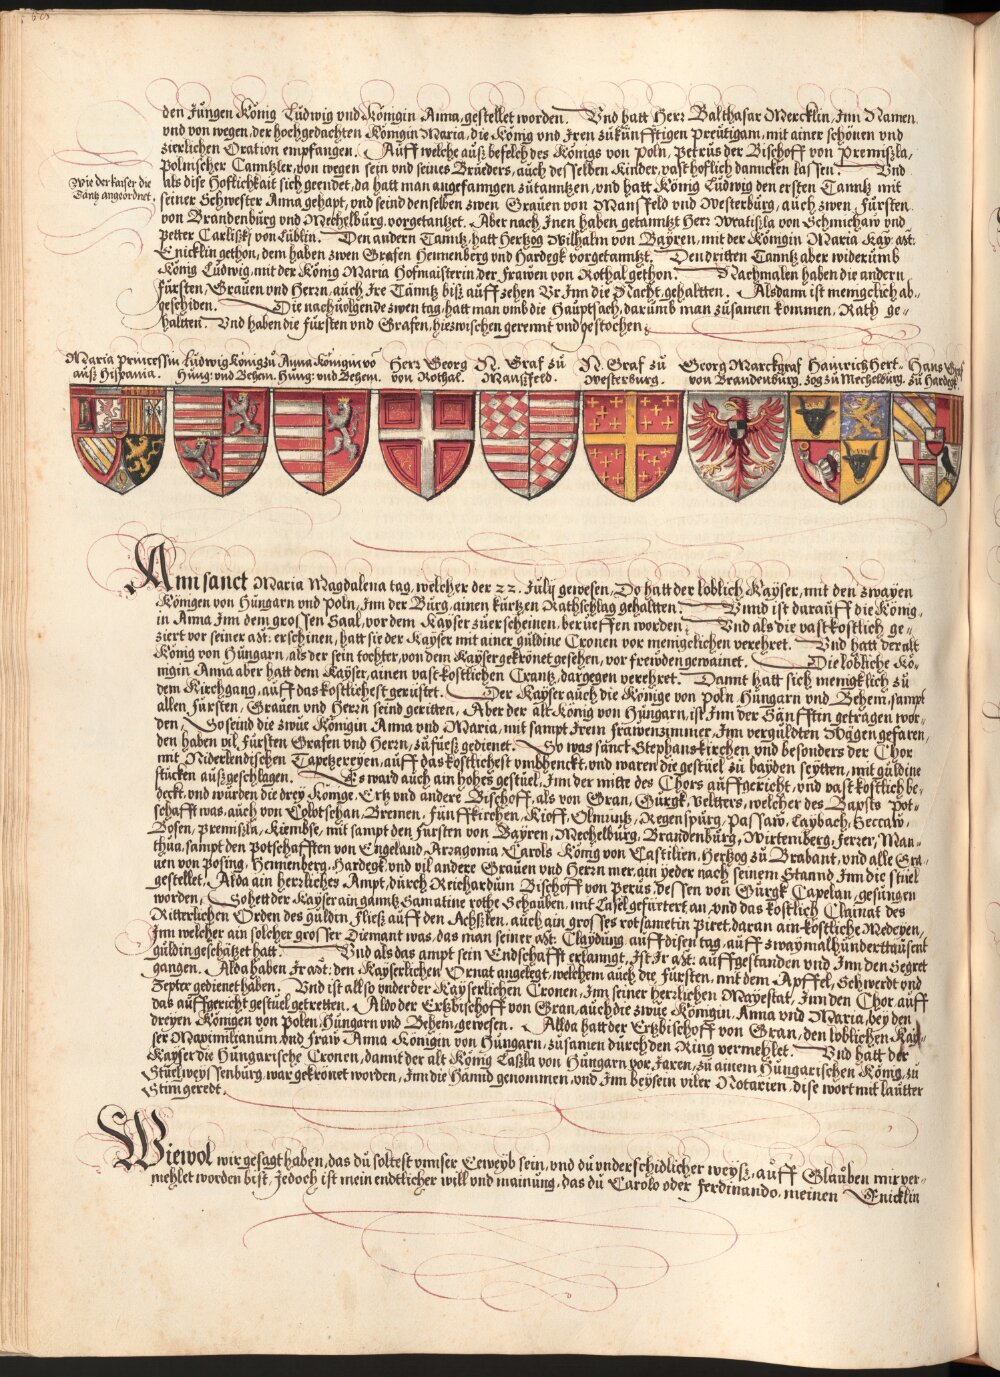 den Jungen König Ludwig vnd Königin Anna, gestellet worden. Vnd hatt Herr Balthasar Mercklin, Jnn Namen
vnd von wegen, der hochgedachten Königin Maria, die König vnd Jren zukünfftigen Preütigam, mit ainer schönen vnd
zierlichen Oration empfangen. Auff welche auß befelch des Königs von Poln, Petrus der Bischoff von Premißla,
Polnischer Canntzler, von wegen sein vnd seines Brueders, auch desselben Kinder, vast höflich danncken lassen. Vnd
als dise Höflichkait sich geendet, da hatt man angefanngen zutanntzen, vnd hatt König Ludwig den ersten Tanntz mit
wie der kaiser die
Täntz angeordnet.
seiner Schwester Anna gehapt, vnd seind denselben zwen Grauen von Mansfeld vnd Westerburg, auch zwen Fürsten
von Brandenburg vnd Mechelburg, vorgetantzet. Aber nach Jnen haben getanntzt Herr Wratißla von Schmichaw vnd
Petter Carlißkj von Lublin. Den andern Tanntz, hatt Hertzog Wilhalm von Bayren, mit der Königin Maria Kay: Mt:
Enicklin gethon, dem haben zwen Grafen Hennenberg vnd Hardegk vorgetanntzt. Den dritten Tanntz aber widerumb
König Ludwig, mit der König Maria Hofmaisterin der frawen von Rothal gethon. Nachmalen haben die andern
Fürsten, Grauen vnd Herrn, auch Jre Täntz biß auff zehen Vr Jnn die Nacht, gehaltten. Alsdann ist menigclich ab-
geschiden. Die nachuolgende zwen tag, hatt man vmb die Hauptsach, darumb man zusamen kommen, Rath ge-
haltten. Vnd haben die Fürsten vnd Grafen, hiezwischen gerennt vnd gestochen.
Maria Princessin
auß Hispania.
Ludwig König zu
Hung: vnd Behem.
Anna Königin vo
Hung: vnd Behem.
Herr Georg
von Rothal.
N. Graf zu
Mansfeld.
N. Graf zu
Westerburg.
Georg Marckgraf
von Brandenburg.
Hainrich Hert-
zog zu Mechelburg.
Hans Graf
zu Hardegk
Ann sanct Maria Magdalena tag, welcher der 22. Julij gewesen, Do hatt der loblich Kayser, mit den zwayen
Königen von Hungarn vnd Poln, Jnn der Burg, ainen kurtzen Rathschlag gehaltten. Vnnd ist darauff die König-
in Anna Jnn dem grossen Saal, vor dem Kayser zuerscheinen, berueffen worden. Vnd als die vast kostlich ge-
ziert vor seiner Mt: erschinen, hatt sie der Kayser mit ainer guldine Cronen vor menigclichen verehret. Vnd hatt der alt
König von Hungarn, als der sein tochter, von dem Kayser gekrönet gesehen, vor frewden gewainet. Die löbliche Kö-
nigin Anna aber hatt dem Kayser, ainen vast kostlichen Crantz, dargegen verehret. Dannt hatt sich menigklich zu
dem Kirchgang, auff das kostlichest gerüstet. Der Kayser auch die Könige von Poln Hungarn vnd Behem, sampt
allen Fürsten, Grauen vnd Herrn seind geritten, Aber der alt König von Hungarn, ist Jnn der Sänfftin getragen wor-
den. So seind die zwue Königin Anna vnd Maria, mit sampt Jrem frawenzimmer, Jnn vergulten Wägen gefaren,
den haben vil Fürsten Grafen vnd Herrn, zufueß gedienet. So was sanct Stephans kirchen vnd besonders der Chor
mit Niderlendischen Tapetzereyen, auff das kostlichest vmbhenckt, vnd waren die gestuel zu bayden seytten, mit guldine
stucken außgeschlagen. Es ward auch ain hohes gestuel, Jnn der mitte des Chors auffgericht, vnd vast kostlich be-
deckt, vnd wurden die drey Könige, Ertz vnd andere Bischoff, als von Gran, Gurgk, Veltters, welcher des Bapsts Pot-
schafft was, auch von Colotschan, Bremen, Funffkirchen, Kioff, Olmuntz, Regenspurg, Passaw, Laybach, Seccaw,
Bosen, Premißla, Kiembse, mit sampt den Fursten von Bayren, Mechelburg, Brandenburg, Wirtemberg, Ferrer, Man-
thua, sampt den Potschafften von Engeland, Arragonia Carols König von Castilien, Hertzog zu Brabant, vnd alle Gra-
uen von Posing, Hennenberg, Hardegk, vnd vil andere Grauen vnd Herrn mer, ein yeder nach seinem Stannd Jnn die stuel
gestellet, Alda ain herrliches Ampt, durch Reichardum Bischoff von Perus, dessen von Gurgk Capelan, gesungen
worden. So hett der Kayser ain ganntz Samatine rothe Schauben, mit Casel gefürtert an, vnd das kostlich Clainat des
Ritterlichen Orden des guldin Fließ auff den Achßlen, auch ain grosses rot sametin Piret, daran ain kostliche Medeyen,
Jnn welcher ain solcher grosser Diemant was, das man seiner Mt: Claydung, auff disen tag, auff zwaymalhunderttausent
guldin geschätzet hatt. Vnd als das ampt sein Endschafft erlanngt, Ist Jr Mt: auffgestanden vnd Jnn den Segret
gangen. Alda haben Jr Mt: den Kayserlichen Ornat angelegt, welchem auch die Fürsten, mit dem Apffel, Schwerdt vnd
Zepter gedienet haben. Vnd ist allso vnder der Kayserlichen Cronen, Jnn seiner herrlichen Mayestat, Jnn den Chor auff
das auffgericht gestuel getretten. Aldo der Ertzbischoff von Gran, auch die zwue Königin, Anna vnd Maria, bey den
dreyen Königen von Polen, Hungarn vnd Behem, gewesen. Allda hatt der Ertzbischoff von Gran, den loblichen Kay-
ser Maximilianum, vnd fraw Anna Königin von Hungarn, zusamen durch den Ring vermehlet. Vnd hatt der
Kayser die Hungarische Cronen, damit der alt König Laßla von Hungarn vor Jaren, zu ainem Hungarischen König, zu
Stuelweyssenburg, war gekrönet worden, Jnn die Hannd genommen, vnd Jnn beysein viler Notarien, dise wort mit lautter
Stim geredt.
Wiewol wir gesagt haben, das du soltest vnnser Eeweyb sein, vnd du vnderschidlicher weyß, auff Glauben mir ver-
mehlet worden bist, Jedoch ist mein endtlicher will vnd mainung, das du Carolo oder Ferdinando, meinen Enicklin